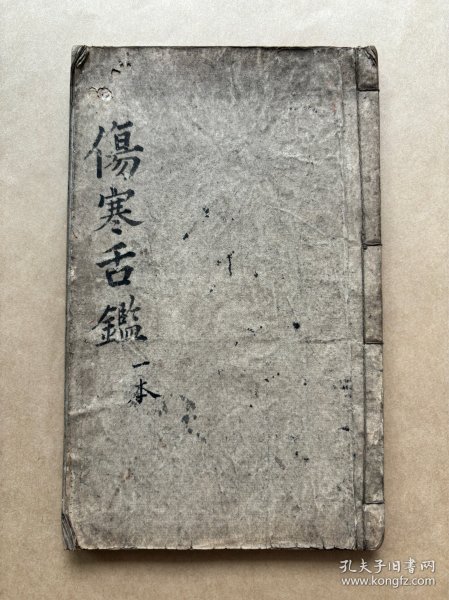 傷寒舌鑑
一本
孔夫子旧书网
www.kongfz.com